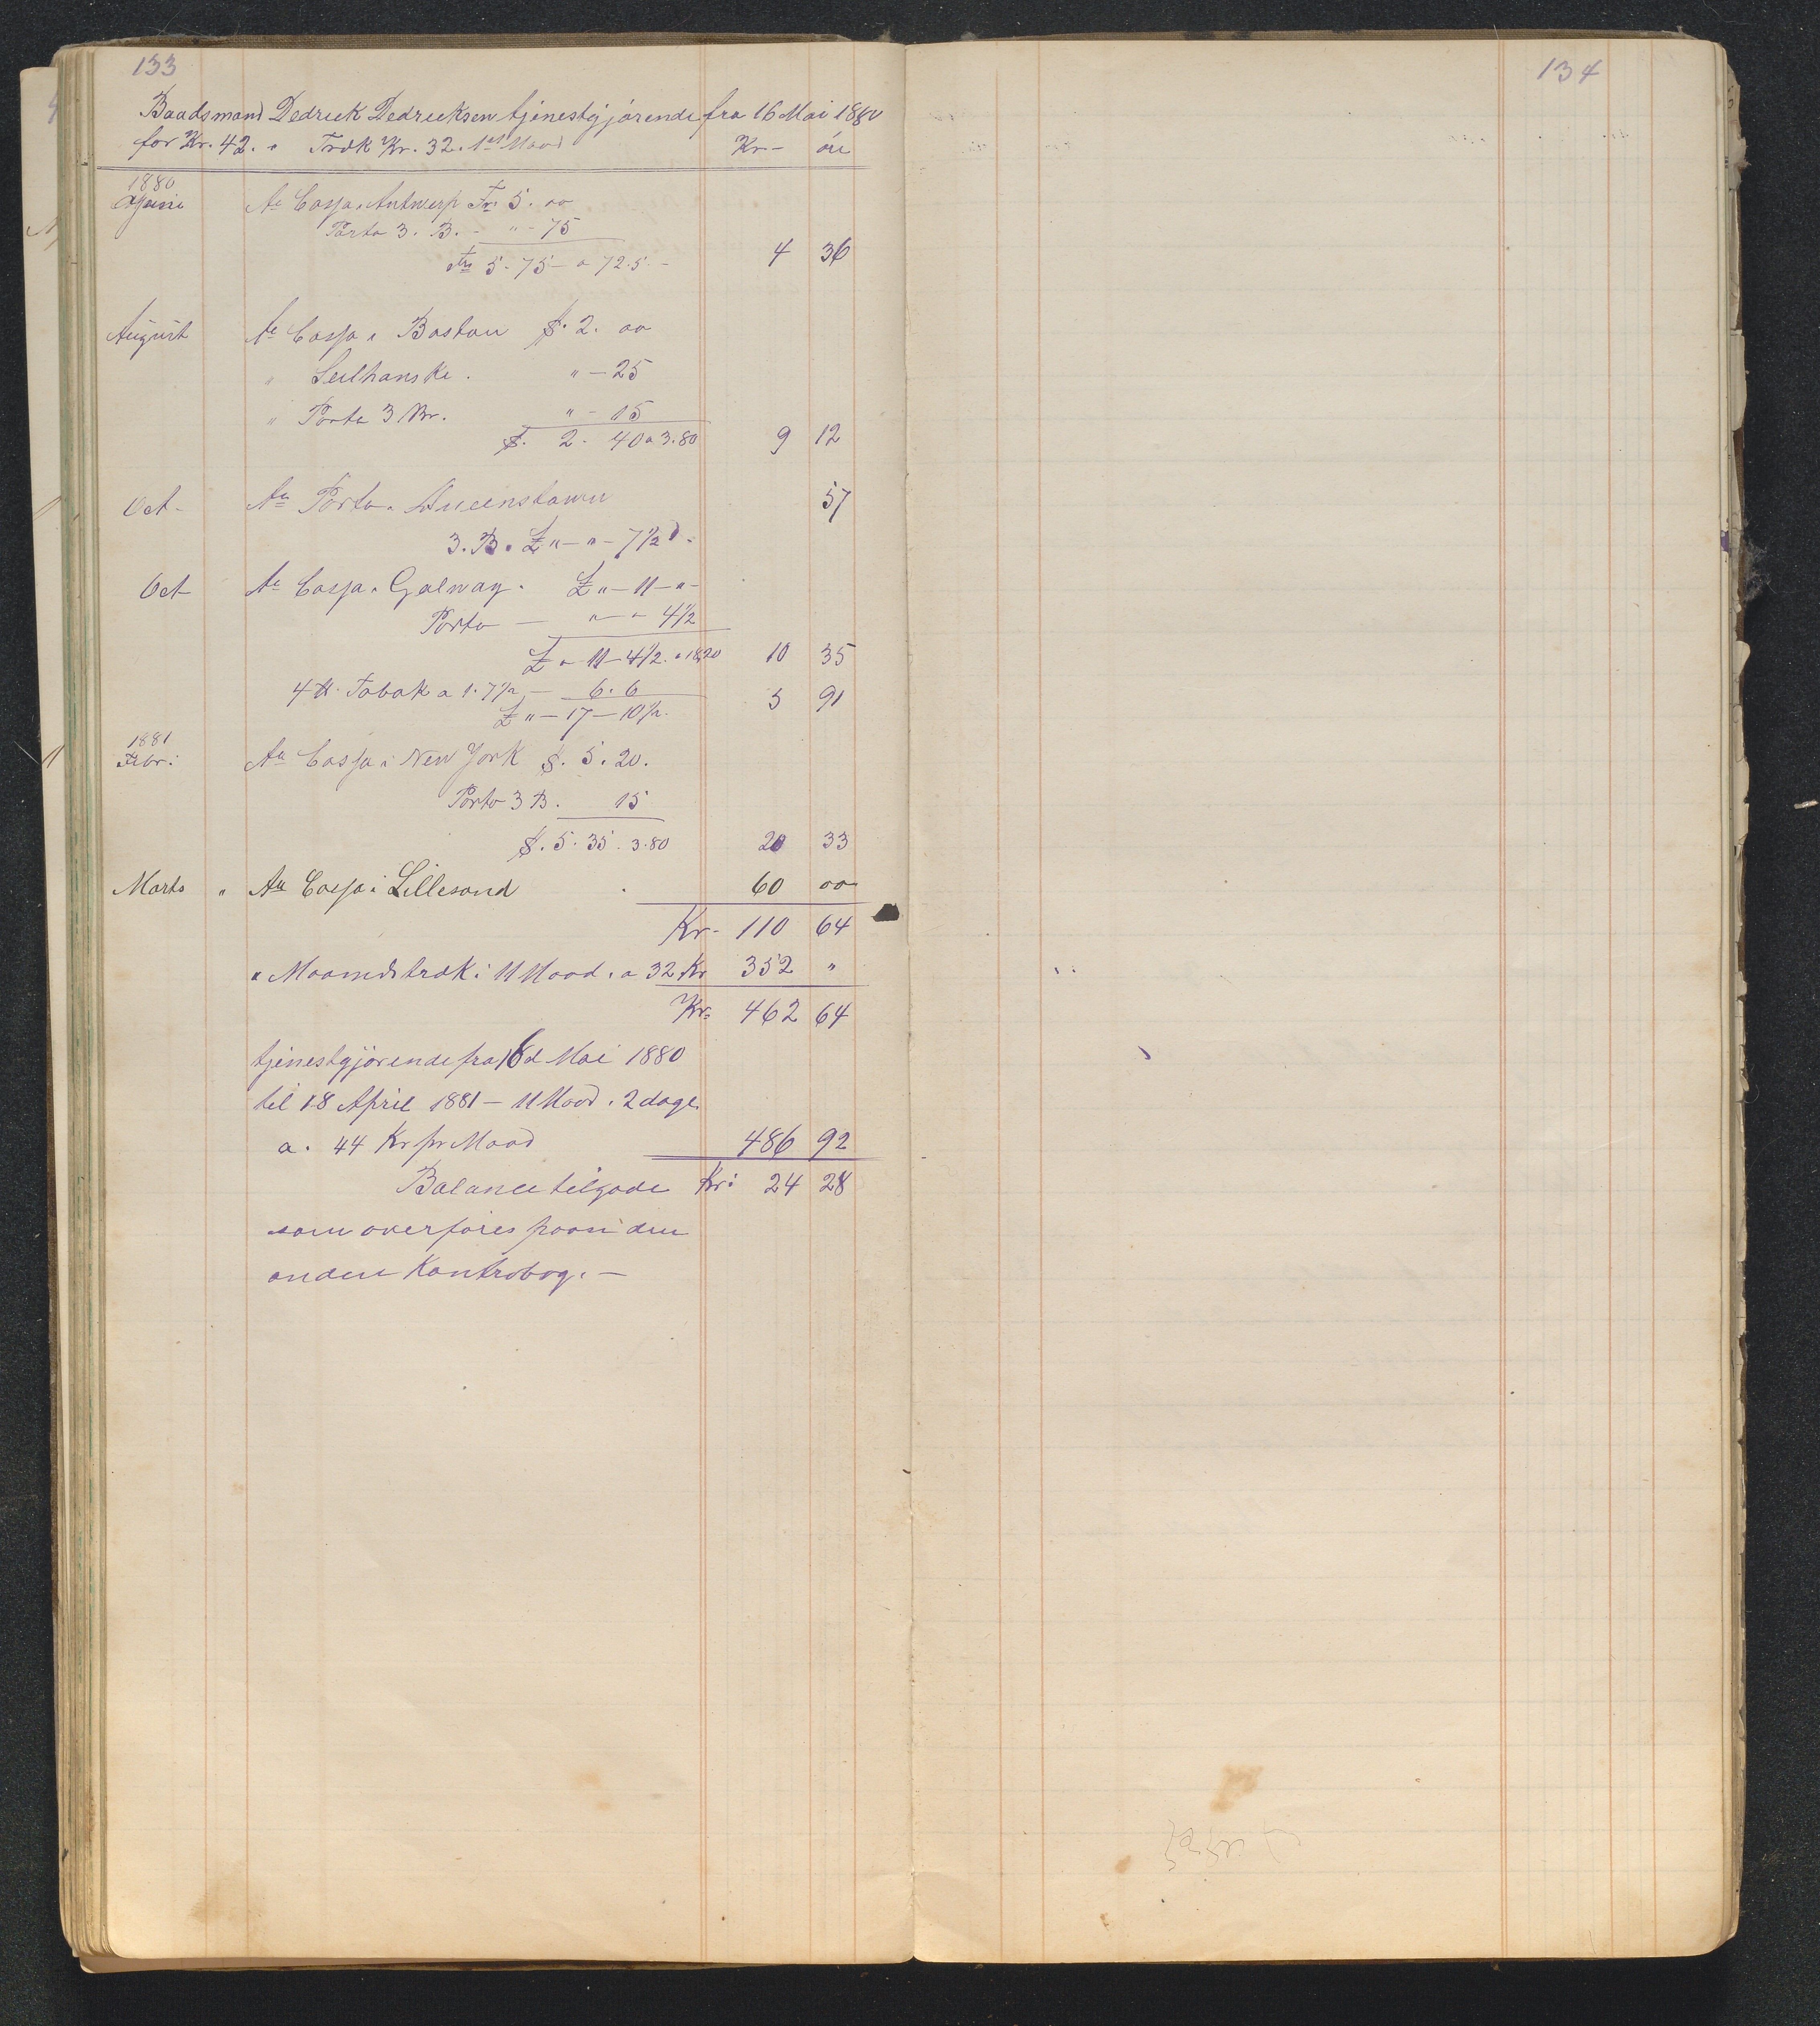 133
Baadsmand Dedrick Dedricksen tjenestgjörende fra 16 Mai 1880
for Kr. 42. " Træk Kr. 32. Maad Kr - öre
1880
Juni An Cassa i Antwerp Frs 5. 00
Porto 3. B. - " - 75
Frs 5. 75 - a 72.5 - 4 36
August An Cassa i Boston $. 2. 00
" Seilhanske. " - 25
" Porto 3 Br. " - 15
$. 2. 40 a 3.80 9 12
Oct - An Porto i Queenstown 57
3. B. £ " - " - 7 1/2 d -
Oct An Cassa i Galway. £ " - 11 - " -
Porto - " - " 4 1/2
£ " 11 - 4 1/2. a 18,20 10 35
4 ℔. Tobak a 1. 7 1/2 - 6. 6 5 91
£ " - 17 - 10 1/2.
1881
Febr: An Cassa i New York $. 5. 20.
Porto 3 B. 15
$. 5. 35. 3.80 20 33
Marts " An Cassa i Lillesand 60 00
Kr - 110 64
" Maanedstræk i 11 Maad. a 32 Kr 352 "
Kr: 462 64
tjenestgjörende fra 16d Mai 1880
til 18 April 1881 - 11 Maad. 2 dage
a. 44 Kr pr Maad 486 92
Balance tilgode Kr: 24 28
som overföres paa i den
anden Kontrabog. -
134